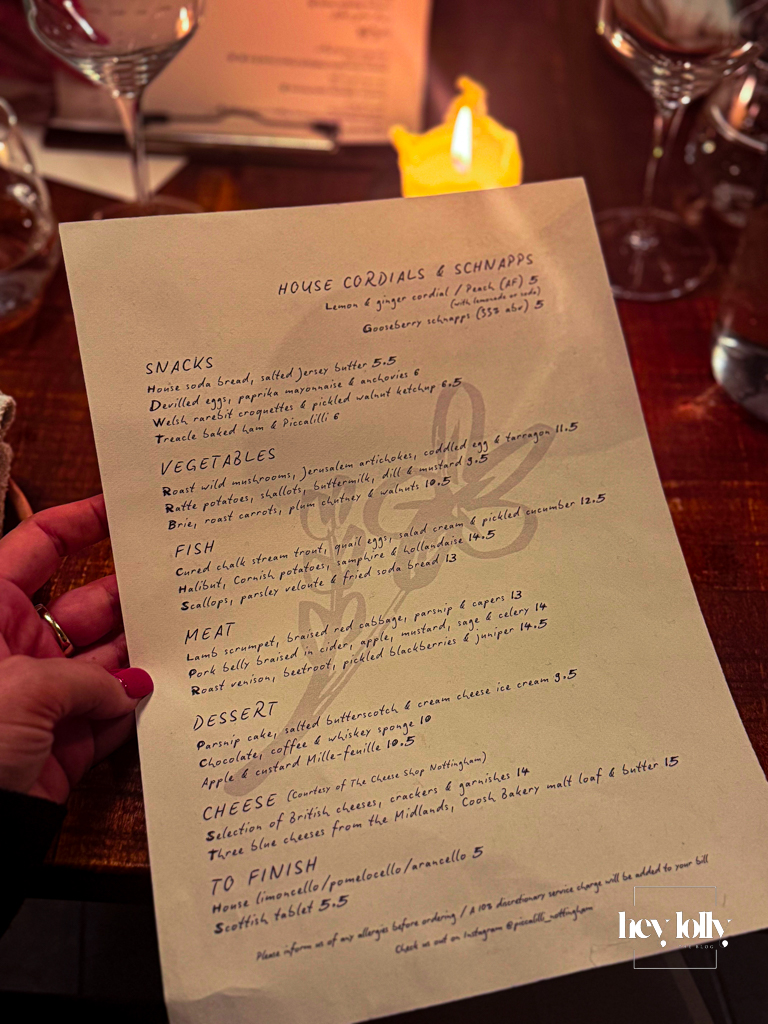 HOUSE CORDIALS & SCHNAPPS
Lemon & ginger cordial / Peach (AF) 5
(with lemonade or soda)
Gooseberry schnapps (33% abv) 5
SNACKS
House soda bread, salted Jersey butter 5.5
Devilled eggs, paprika mayonnaise & anchovies 6
Welsh rarebit croquettes & pickled walnut ketchup 6.5
Treacle baked ham & Piccalilli 6
VEGETABLES
Roast wild mushrooms, Jerusalem artichokes, coddled egg & tarragon 11.5
Ratte potatoes, shallots, buttermilk, dill & mustard 9.5
Brie, roast carrots, plum chutney & walnuts 10.5
FISH
Cured chalk stream trout, quail eggs, salad cream & pickled cucumber 12.5
Halibut, Cornish potatoes, samphire & hollandaise 14.5
Scallops, parsley veloute & fried soda bread 13
MEAT
Lamb scrumpet, braised red cabbage, parsnip & capers 13
Pork belly braised in cider, apple, mustard, sage & celery 14
Roast venison, beetroot, pickled blackberries & juniper 14.5
DESSERT
Parsnip cake, salted butterscotch & cream cheese ice cream 9.5
Chocolate, coffee & whiskey sponge 10
Apple & custard Mille-feuille 10.5
CHEESE (Courtesy of The Cheese Shop Nottingham)
Selection of British cheeses, crackers & garnishes 14
Three blue cheeses from the Midlands, Coosh Bakery malt loaf & butter 15
TO FINISH
House limoncello/pomelocello/arancello 5
Scottish tablet 5.5
Please inform us of any allergies before ordering / A 10% discretionary service charge will be added to your bill
Check us out on Instagram @piccalilli_nottingham
hey lolly
BLOG